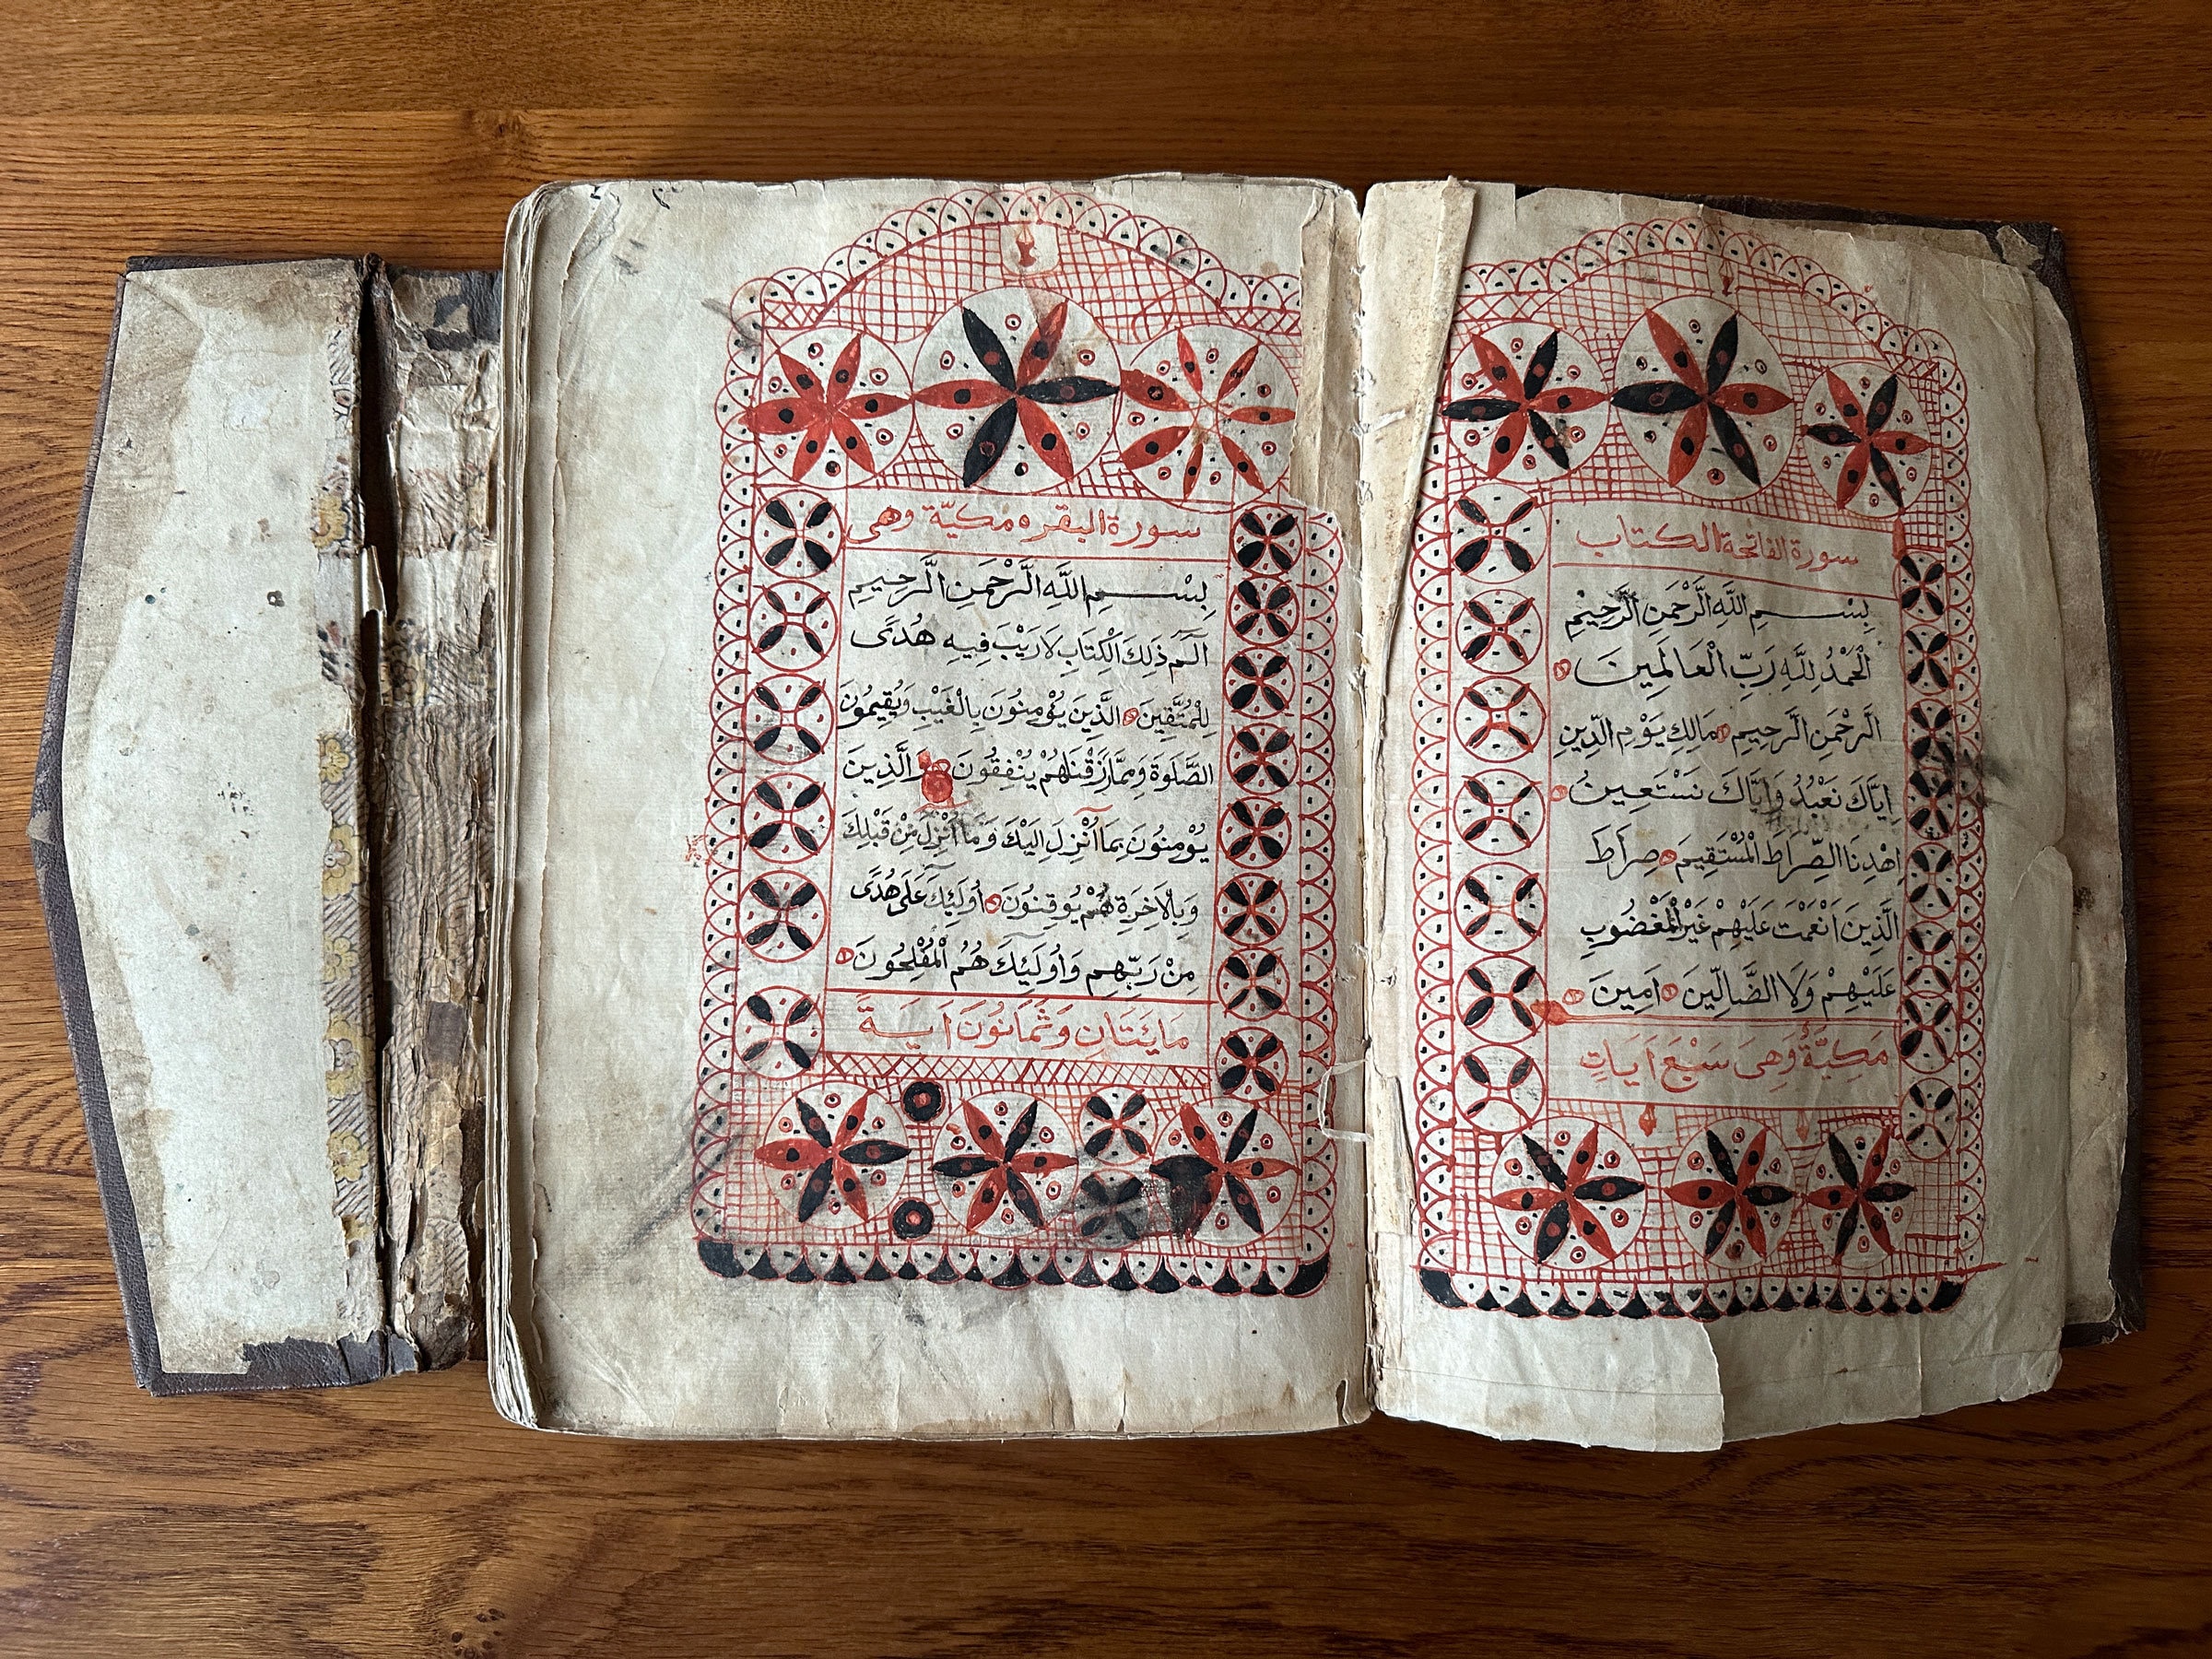 سورة الفاتحة الكتاب
بِسْمِ اللَّهِ الرَّحْمَنِ الرَّحِيمِ
الْحَمْدُ لِلَّهِ رَبِّ الْعَالَمِينَ
الرَّحْمَنِ الرَّحِيمِ مَالِكِ يَوْمِ الدِّينِ
اِيَّاكَ نَعْبُدُ وَاِيَّاكَ نَسْتَعِينُ
اِهْدِنَا الصِّرَاطَ الْمُسْتَقِيمَ صِرَاطَ
الَّذِينَ اَنْعَمْتَ عَلَيْهِمْ غَيْرِ الْمَغْضُوبِ
عَلَيْهِمْ وَلَا الضَّالِّينَ اَمِينَ
مَكِيَّةٌ وَهِيَ سَبْعَ اَيَاتٍ
سورة البقره مكيّة وهى
بِسْمِ اللَّهِ الرَّحْمَنِ الرَّحِيمِ
الٓمٓ ذَلِكَ الْكِتَابِ لَا رَيْبَ فِيهِ هُدًى
لِلْمُتَّقِينَ الَّذِينَ يُؤْمِنُونَ بِالْغَيْبِ وَيُقِيمُونَ
الصَّلَوةَ وَمِمَّا رَزَقْنَاهُمْ يُنْفِقُونَ وَالَّذِينَ
يُؤْمِنُونَ بِمَا اُنْزِلَ اِلَيْكَ وَمَا اُنْزِلَ مِنْ قَبْلِكَ
وَبِالْاَخِرَةِ هُمْ يُوقِنُونَ اُولَئِكَ عَلَى هُدًى
مِنْ رَبِّهِم وَاُولَئِكَ هُمُ الْمُفْلِحُونَ
مَايَتَانِ وَثَمَانُونَ اَيَةً